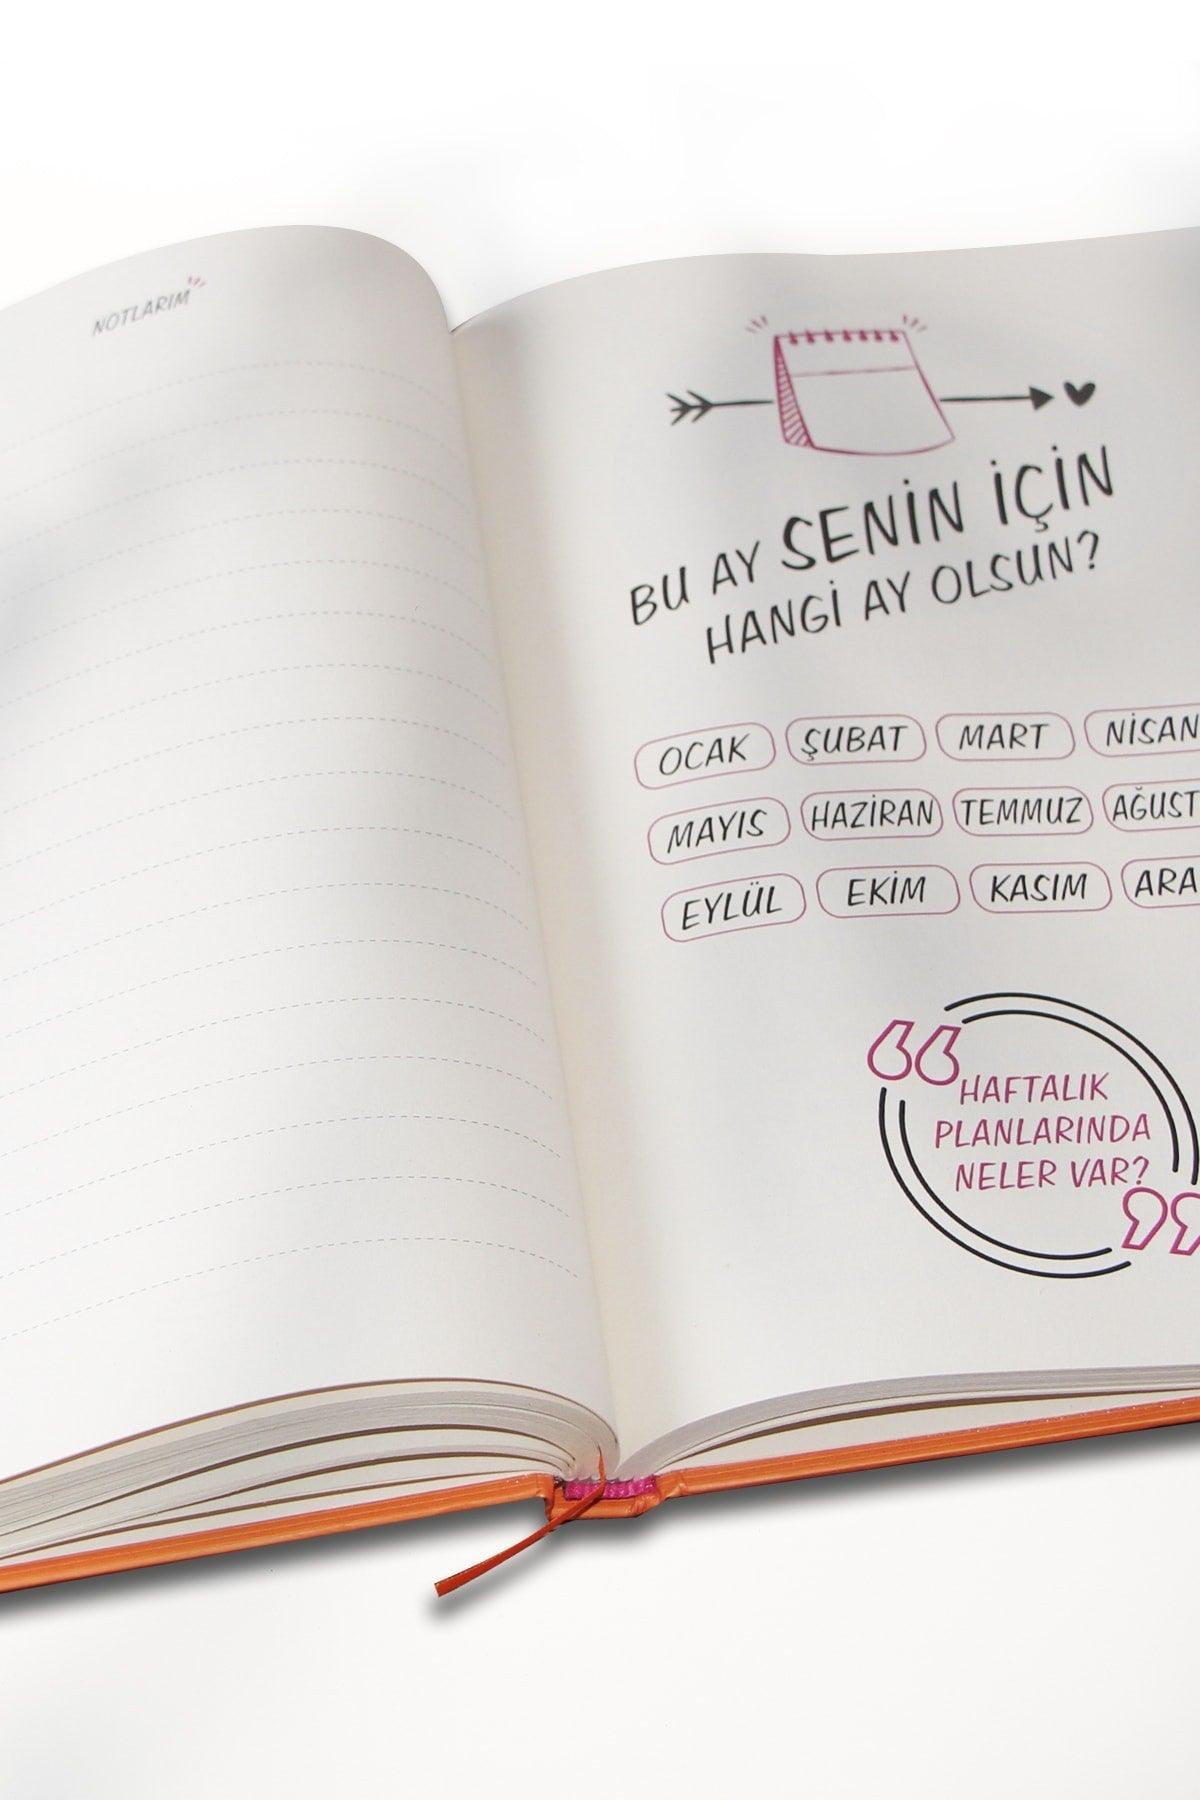 NOTLARIM
BU AY SENİN İÇİN
HANGİ AY OLSUN?
OCAK ŞUBAT MART NİSAN
MAYIS HAZİRAN TEMMUZ AĞUST
EYLÜL EKİM KASIM ARA
HAFTALIK
PLANLARINDA
NELER VAR?